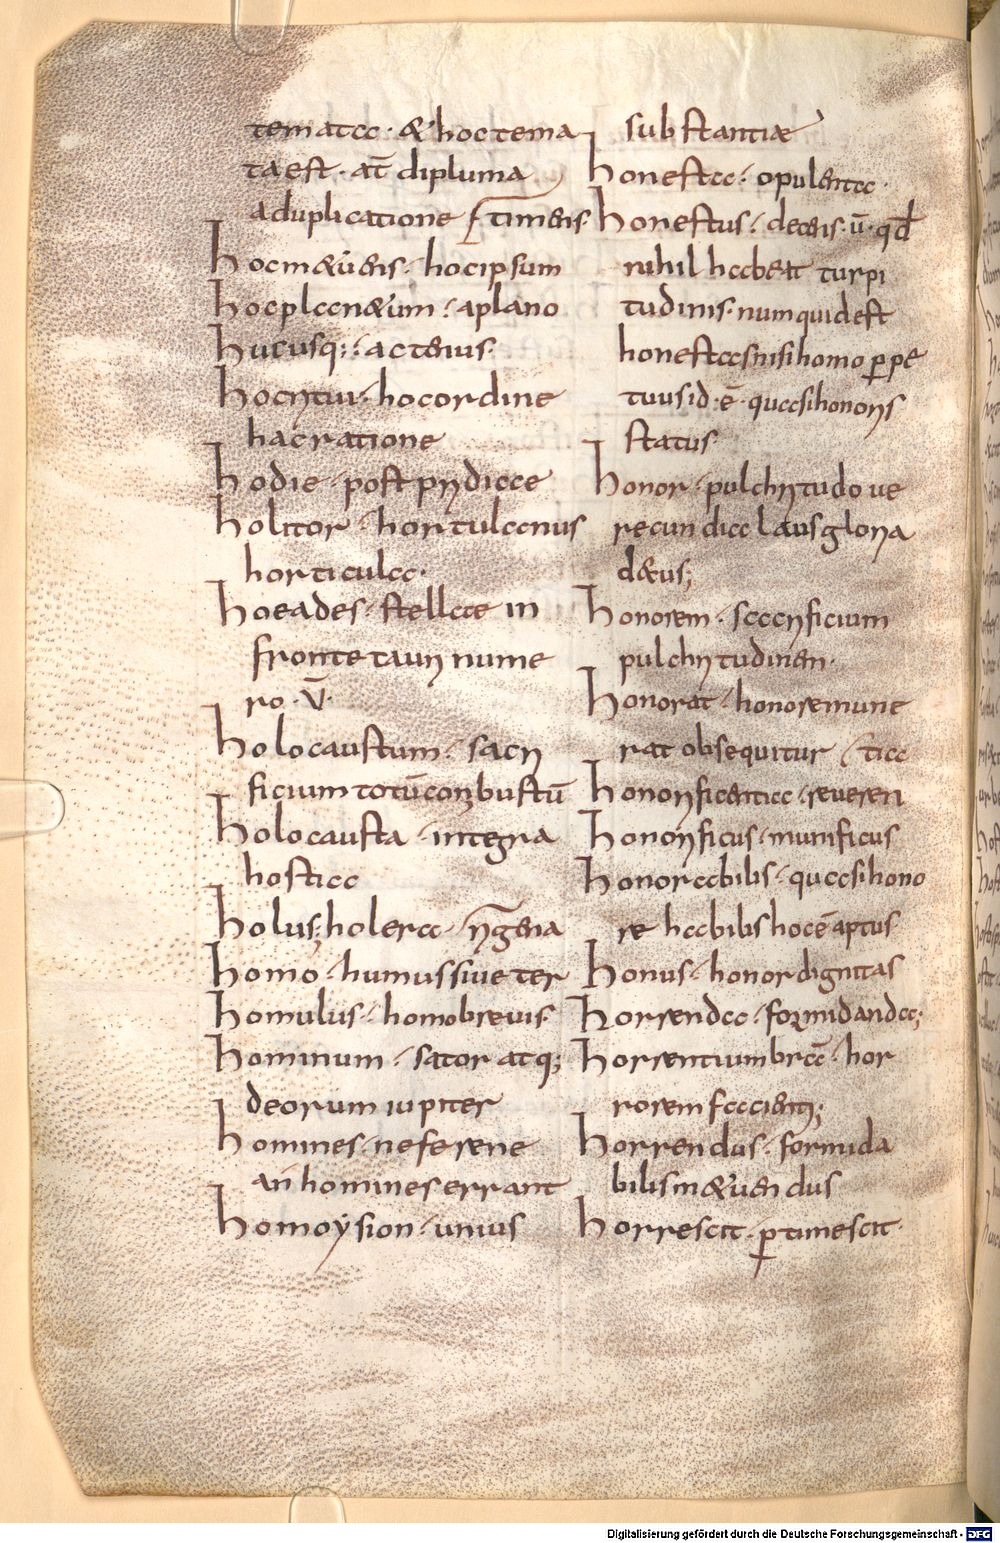 temata · & hoc tema
ta est · at̄ dipluma
a duplicatione
timens·
hoc m&uens · hoc ipsum
hoc plan&um · a plano
hucusq; · actenus·
hoc ritu · hoc ordine
hac ratione
hodie · post pridiae
holitor · hortulanus
horticula·
hoeades · stellae in
fronte tauri nume
ro · v̄·
holocaustum · sacri
ficium totū conbustū
holocausta · integra
hostia
holus; holera
homo · humus siue ter
homulus · homo breuis·
hominum · sator atq;
deorum iupiter
homines · ne ferene
an homines errant
homoysion · unius
substantiae
honesta · opulenta·
honestus · decens· ū· qd̄
nihil habeat turpi
tudinis· num quid est
honestas nisi homo p̱pe
tuus id· ē· quasi honoris
status·
honor · pulchritudo ue
recundia laus gloria
d&us;
honorem · sacrificium
pulchritudinen·
honorat · honore mune
rat obsequitur
tia
honorificentia · reueren
honorificus · munificus
honorabilis · quasi hono
re habilis hoc ē aptus
honus · honor dignitas
horrenda · formidanda;
horrentium brā · hor
rorem facientiū;
horrendus · formida
bilis m&uendus
horrescit · p̱timescit·
Digitalisierung gefördert durch die Deutsche Forschungsgemeinschaft - DFG